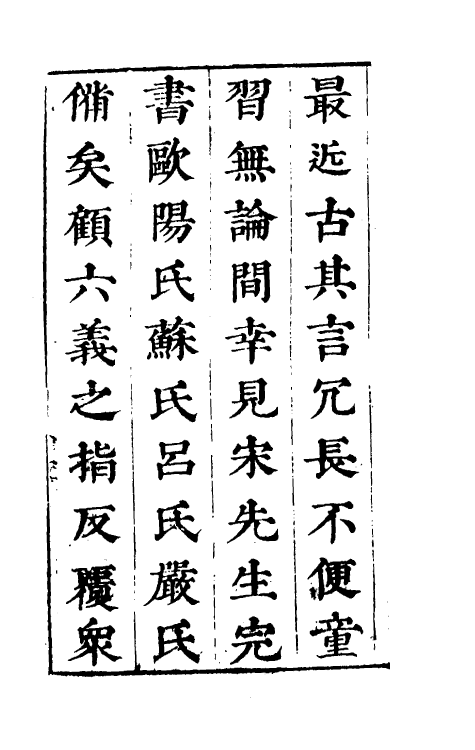 最近古其言冗長不便童
習無論間幸見宋先生完
書歐陽氏蘇氏呂氏嚴氏
偹矣顧六義之指反覆衆